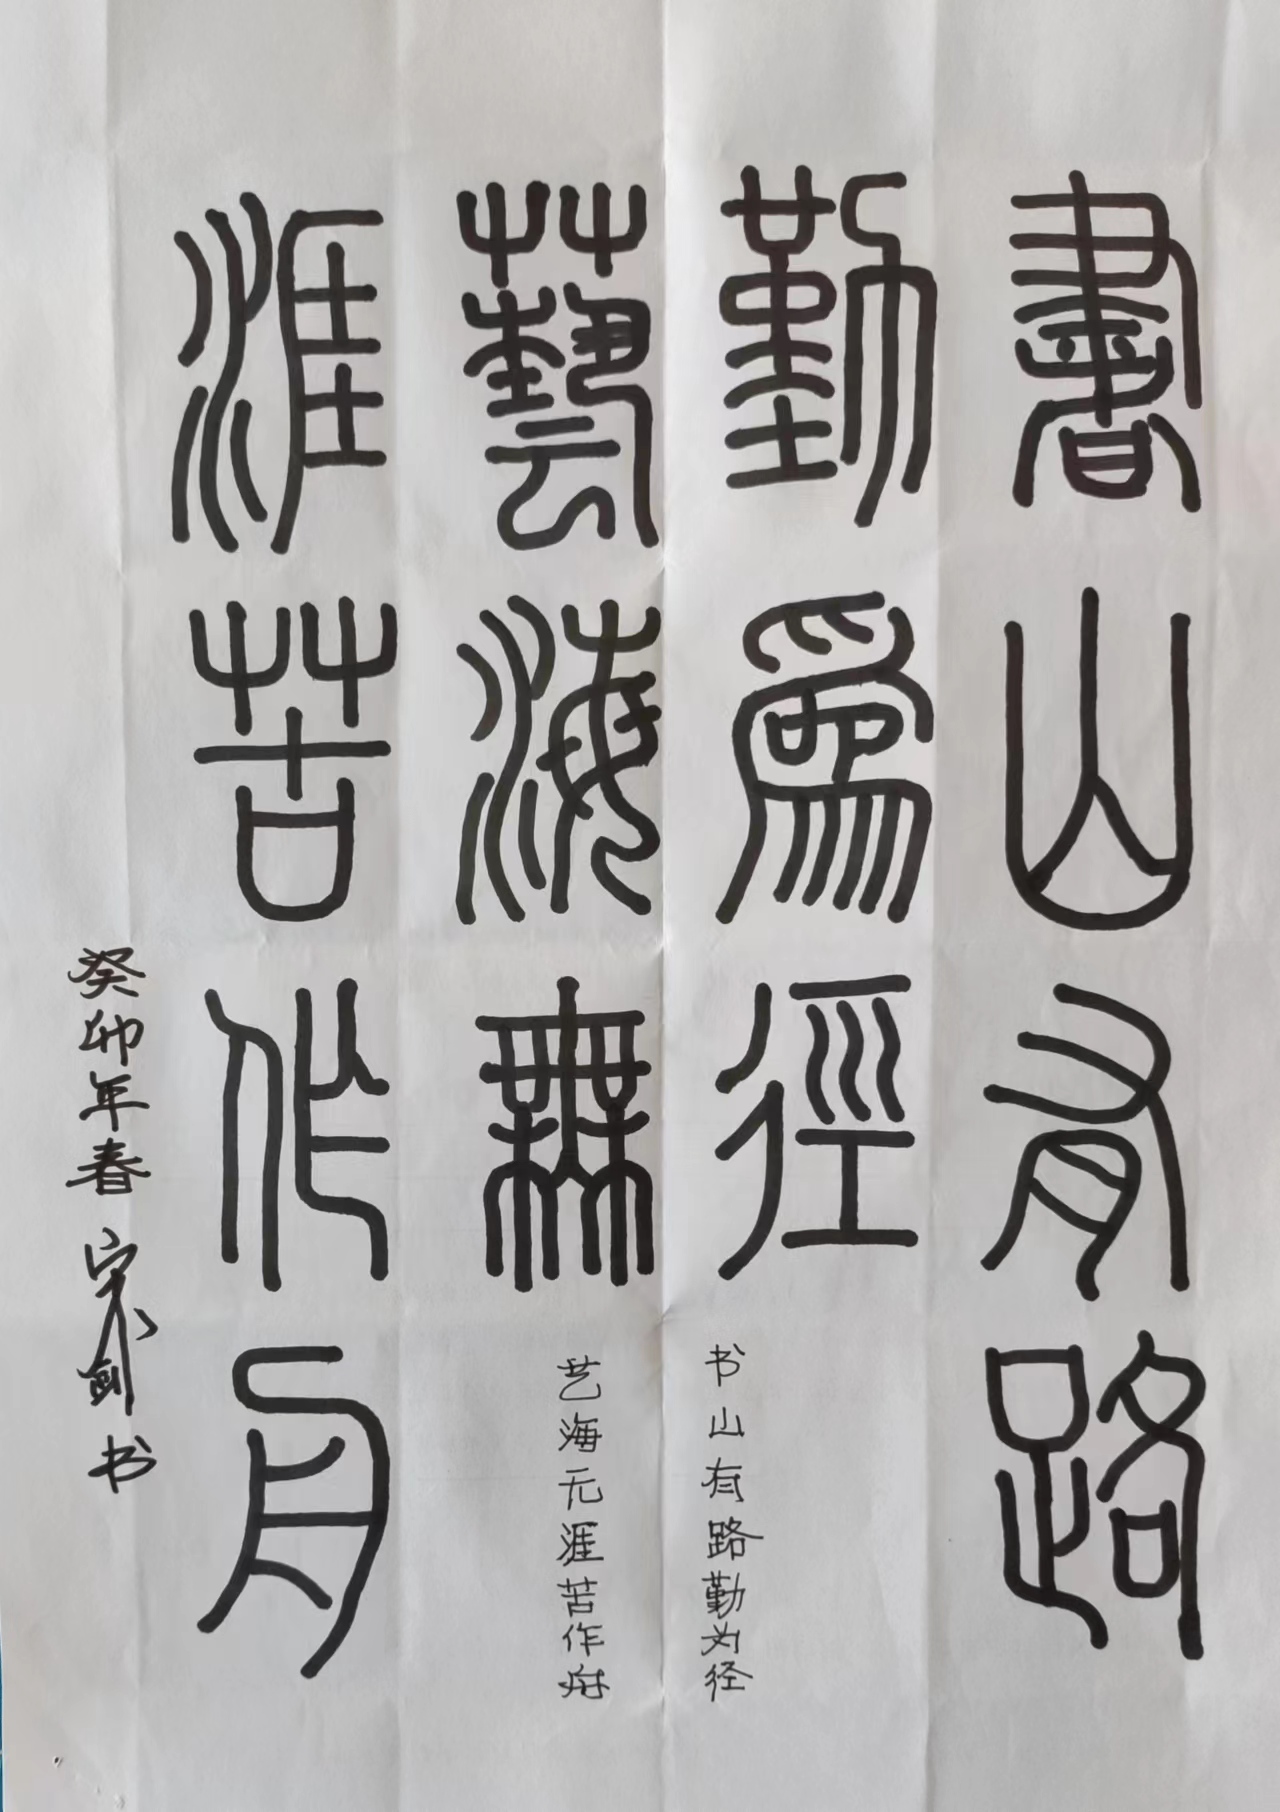 書山有路
勤為徑
藝海無
涯苦作舟
书山有路勤为径
艺海无涯苦作舟
癸卯年春 剑书